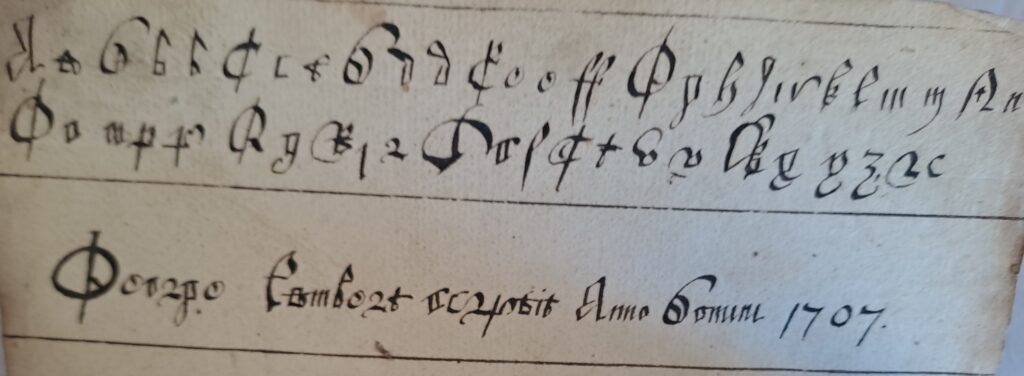 A a B b b C c c D d d E e e ff G g h J i k k l m m N n
O o p p Q q R r r S s s T t v v W x y z &c
George Lambert scripsit Anno Domini 1707.